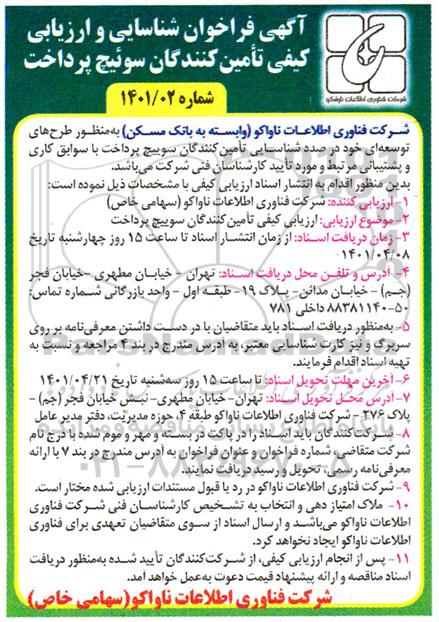 آگهی فراخوان شناسایی و ارزیابی
کیفی تأمین‌کنندگان سوئیچ پرداخت
شرکت فناوری اطلاعات ناواکو
شماره ۱۴۰۱/۰۲
شرکت فناوری اطلاعات ناواکو (وابسته به بانک مسکن) به‌منظور طرح‌های
توسعه‌ای خود در صدد شناسایی تأمین‌کنندگان سوییچ پرداخت با سوابق کاری
و پشتیبانی مرتبط و مورد تأیید کارشناسان فنی شرکت می‌باشد.
بدین منظور اقدام به انتشار اسناد ارزیابی کیفی با مشخصات ذیل نموده است:
۱- ارزیابی کننده: شرکت فناوری اطلاعات ناواکو (سهامی خاص)
۲- موضوع ارزیابی: ارزیابی کیفی تأمین‌کنندگان سوییچ پرداخت
۳- زمان دریافت اسناد: از زمان انتشار اسناد تا ساعت ۱۵ روز چهارشنبه تاریخ
۱۴۰۱/۰۴/۰۸
۴- آدرس و تلفن محل دریافت اسناد: تهران - خیابان مطهری - خیابان فجر
(جم) - خیابان مدائن - پلاک ۱۹ - طبقه اول - واحد بازرگانی شماره تماس:
۵۰-۸۸۳۸۱۱۴۰ داخلی ۷۸۱
۵- به‌منظور دریافت اسناد باید متقاضیان با در دست داشتن معرفی‌نامه بر روی
سربرگ و نیز کارت شناسایی معتبر، به آدرس مندرج در بند ۴ مراجعه و نسبت به
تهیه اسناد اقدام فرمایند.
۶- آخرین مهلت تحویل اسناد: تا ساعت ۱۵ روز سه‌شنبه تاریخ ۱۴۰۱/۰۴/۲۱
۷- آدرس محل تحویل اسناد: تهران - خیابان مطهری - نبش خیابان فجر (جم) -
پلاک ۲۷۶ - شرکت فناوری اطلاعات ناواکو طبقه ۴، حوزه مدیریت، دفتر مدیر عامل
۸- شرکت‌کنندگان باید اسناد را در پاکت در بسته و مهر و موم شده با درج نام
شرکت متقاضی، شماره فراخوان و عنوان فراخوان به آدرس مندرج در بند ۷ با ارائه
معرفی‌نامه رسمی، تحویل و رسید دریافت نمایند.
۹- شرکت فناوری اطلاعات ناواکو در رد یا قبول مستندات ارزیابی شده مختار است.
۱۰- ملاک امتیاز دهی و انتخاب به تشخیص کارشناسان فنی شرکت فناوری
اطلاعات ناواکو می‌باشد و ارسال اسناد از سوی متقاضیان تعهدی برای فناوری
اطلاعات ناواکو ایجاد نخواهد کرد.
۱۱- پس از انجام ارزیابی کیفی، از شرکت‌کنندگان تأیید شده به‌منظور دریافت
اسناد مناقصه و ارائه پیشنهاد قیمت دعوت به‌عمل خواهد آمد.
شرکت فناوری اطلاعات ناواکو (سهامی خاص)